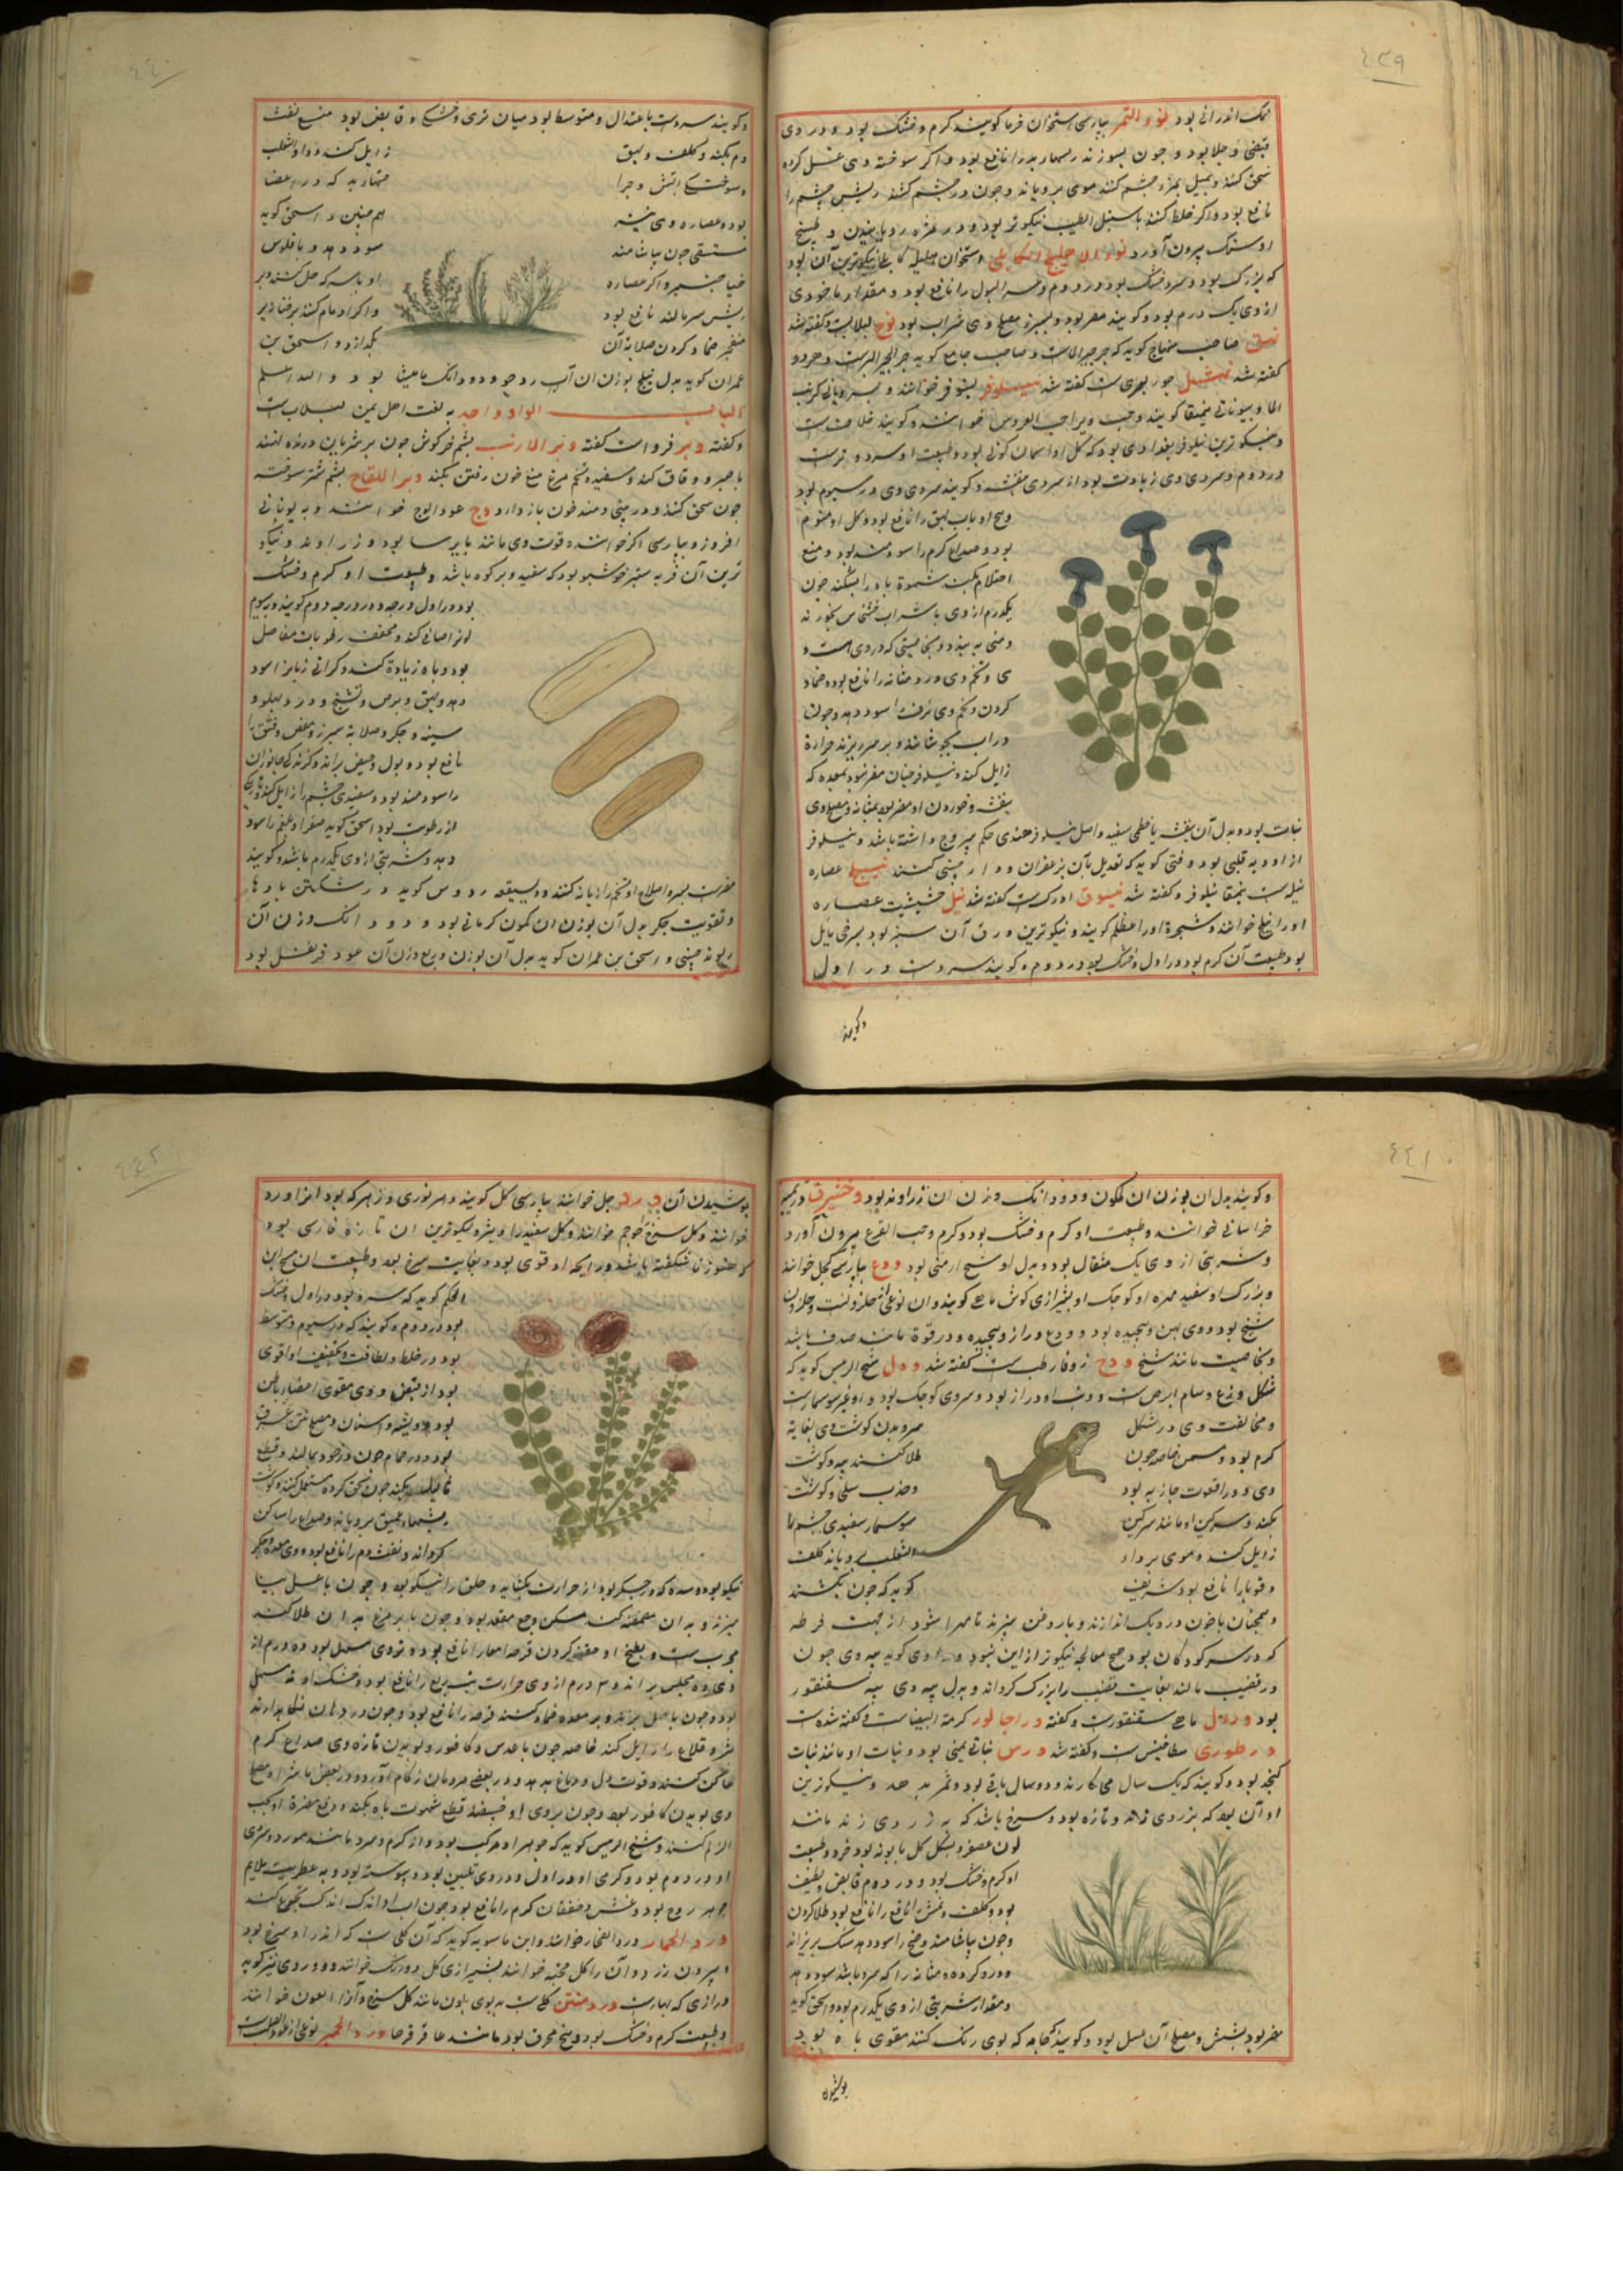 ٤٣٩
نمک اندرانی بود نوی التمر بپارسی استخوان خرما کویند کرم و خشک بود و در وی
قبضی و جلا بود و چون بسوزند ریشهاء بد را نافع بود و اگر سوخته وی غسل کرده
سحق کنند و بمیل بمژه چشم کنند موی برویاند و چون در چشم کنند ریش چشم را
نافع بود و اگر خلط کنند با سنبل الطیب نیکوتر بود و در مژه رویانیدن و طبیخ
او سنک بیرون آورد نوی الاهلیلج الکابلی استخوان هلیله کابلی نیکوترین آن بود
که بزرک بود و سرد و خشک بود در دوم و سلس البول را نافع بود و مقدار ماخوذ
از وی یک درم بود و کویند مضر بود بسپرز مصلح وی شراب بود نوح لبلابست و کفته شد
نهق صاحب منهاج کوید که جرجیر الماست و صاحب جامع کوید جرجیر البرست و هر دو
کفته شد نهشل جزر بری ست کفته شد نیلوفر
الما و بیونانی نیمفا کویند و حب ویرا حب العروس خوانند و کویند خلاف ست
و نیکوترین نیلوفر بغدادی بود که کل او اسمان کونی بود و طبیعت او سرد و ترست
در دوم و سردی وی زیادت بود از سردی بنفشه و کویند سردی وی در سیوم بود
و بیخ او با آب بهق را نافع بود و کل او منوم
بود و صداع کرم را سودمند بود و منع
احتلام بکند شهوة باه را بشکند چون
یکدرم از وی با شراب خشخاش بخورند
و منی به بندد و بخاصیتی که در وی است و
بیخ و تخم وی درد مثانه را نافع بود و ضماد
کردن و تخم وی نزف را سود دهد و چون
در اب بجوشانند و بر سر ریزند حرارة
زایل کند و نیلوفر چنان مضر نبود بمعده که
بنفشه و خوردن او مضر بود بمثانه و مصلح وی
نبات بود و بدل آن بنفشه یا خطمی سفید و اصل نیلوفر هندی حکم یبروح داشته باشد و نیلوفر
از ادویه قلبی بود و فتی کوید که تعدیل بان بزعفران و دارچینی کنند نیلج عصاره
نیله ست نیمفا نیلوفر و کفته شد نیسوق ادرک ست کفته شد نیل حشیشیت عصاره
اورا نیلج خوانند و شجرة اورا عظلم کویند و نیکوترین ورق آن سبز بود بسرخی مایل
بود طبیعت آن کرم بود در اول و خشک بود در دوم و کویند سردست در اول
و کویند
٤٤٠
و کویند سردست باعتدال و متوسط بود میان تری و خشکی و قابض بود منع نفث
دم بکند و کلف و بهق زایل کند و داء الثعلب
و سوختکی آتش و جرا حتهاء بد که در اعضا
بود و عصاره وی بنیشه هم چنین و اسحق کوید
مستسقی چون بیاشامند سود دهد و با فلوس
خیار چنبر و اگر عصاره او با سرکه حل کنند و بر
ریش سر مالند نافع بود و اگر ادمام کنند بر خنازیر
منفجر ضماد کردن صلابة آن بکدازد و اسحق بن
عمران کوید بدل نیلج بوزن ان آب رد جو و دو دانک مامیثا بود و الله اعلم
الباب الواو واجد به لغت اهل یمن لبلاب ست
و کفته وبر فرو است کفته وبر الارنب پشم خرکوش چون بر شریان دریده نهند
با صبر و دقاق کند و سفیده تخم مرغ منع خون رفتن بکند وبر اللقاح پشم شتر سوخته
چون سحق کنند و در بینی دمند خون باز دارد وج عود الوج خوانند و به یونانی
اقرو و بپارسی اکر خوانند و قوت وی مانند بایرسا بود و زراوند و نیکو
ترین آن فربه ستبر خوشبو بود که سفید و پر کره باشد و طبیعت او کرم و خشک
بود در اول درجه و در درجه دوم کویند و سیوم
لونرا صافی کند و مجفف رطوبات مفاصل
بود و باه زیادة کند و کرانی زبانرا سود
دهد و بهق و برص و تشنج و درد پهلو و
سینه و جکر و صلابة سپرز و مغص و فتق را
نافع بود و بول و حیض براند و کزیدکی جانوران
را سودمند بود و سفیدی چشم را زایل کند
از رطوبت بود اسحق کوید صفرا و بلغم را سود
دهد و شربتی از وی یکدرم باشد و کویند
مضرست بسر و اصلاح او بتخم رازیانه کنند و دیسقوریدوس کوید در شکستن بادها
و تقویت جکر بدل آن بوزن ان کمون کرمانی بود و دو دانک وزن آن
ریوند چینی و اسحق بن عمران کوید بدل آن بوزن و ربع وزن آن عود قرنفل بود
٤٤١
و کویند بدل ان بوزن ان کمون و دو دانک وزن ان زراوند بود وخشیرق در تمیز
خراسانی خوانند و طبیعت او کرم و خشک بود و کرم و حب القرع بیرون آورد
و شربتی از وی یک مثقال بود و بدل او شیح ارمنی بود ودع بپارسی کجل خوانند
و بزرک او سفید مهره او کوچک او بشیرازی کوش ماهی کویند و ان نوعی از حلزونست و حلزون
شنج بود و وی پهن و پیچیده بود و ودع دراز و پیچیده و در قوة مانند صدف باشد
و بخاصیت مانند شنج ودح زوفا رطب ست کفته شد ورل شیخ الرئیس کوید که
شکل وزغ و سام ابرص ست و دنب او دراز بود و سر وی کوچک بود و او غیر سوسمار ست
و مخالفت وی در شکل سر و بدن کوشت وی بغایة
کرم بود و مسمن خاصه چون طلا کنند پیه و کوشت
وی و در او قوت جاذبه بود و جذب سلی و کوشت
بکند و سرکین او مانند سرکین سوسمار سفیدی چشم را
زایل کند و موی بر داء الثعلب برویاند کلف
و قوبا را نافع بود شریف کوید که چون بکشند
و همچنان با خون در دیک اندازند و با روغن بپزند تا مهرا شود از جهت قرطه
که در سر کودکان بود هیچ معالجه نیکوتر ازین نبود و رازی کوید پیه وی چون
در قضیب مالند بغایت قضیب را بزرک کرداند و بدل پیه وی پیه سقنقور
بود ورل ماهی سقنقورست و کفته وراجالور کرمة البیضا ست و کفته شده ست
ورطوری سطاخینس ست و کفته شد ورس نباتی یمنی بود و نبات او مانند نبات
کنجد بود و کویند که یک سال می کارند و ده سال باقی بود و ثمر بدهد و نیکوترین
او آن بود که بزردی زند و تازه بود و سرخ باشد که به زردی زند مانند
لون عصفر و بشکل کل بابونه بود خرد و طبیعت
او کرم و خشک بود و در دوم قابض و لطیف
بود و کلف و نمش را نافع بود طلا کردن
و چون بیاشامند وضح را سود دهد سنک بریزاند
و درد کرده و مثانه را که سرد باشد سود دهد
و مقدار شربتی از وی یکدرم بود و اسحق کوید
مضر بود بشش و مصلح آن عسل بود و کویند جامه که بوی رنک کنند مقوی باه بود
پوشیدن
٤٤٢
پوشیدن آن ورد جل خوانند بپارسی کل کویند و هر نوری و زهر که بود انرا ورد
خوانند و کل سرخ را حوجم خوانند و کل سفید را وتیر و نیکوترین ان تازه فارسی بود
که هنوز نا شکفته باشد و رایحه او قوی بود و بغایت سرخ بود و طبیعت ان مسیح ابن
الحکم کوید که سرد بود در اول و خشک
بود در دوم و کویند که در سیوم و متوسط
بود در غلظ و لطافت و تجفیف او اقوی
بود از قبض و وی مقوی اعضاء باطن
بود و لثه و اسنان و مصلح نتن عرق
بود در حمام چون بر خود بمالند و قطع
ثالیل بکند چون سحق کرده استعمال کنند و کوشت
ریشهاء عمیق برویاند و صداع را ساکن
کرداند و نفث دم را نافع بود و وی معده و جکر
نیکو بود و سده که در جکر بود از حرارت بکشاید و حلق را نیکو بود و چون با عسل بیا
میزند و به ان مضمضه کنند مسکن وجع مقعد بود و چون با پر مرغ به ان طلا کنند
مجرب ست و بطبیخ او حقنه کردن قرحه امعا را نافع بود و تر وی مسهل بود ده درم از
وی ده مجلس براند و سه درم از وی حرارت تب ربع را نافع بود و خشک او نه مسهل
بود و چون با عسل بپزند و بر معده ضماد کنند قرحه را نافع بود و چون در دهان نکاه دارند
بثره و قلاع را زایل کند خاصه چون با عدس و کافور و بوئیدن تازه وی صداع کرم
ساکن کند و قوت دل و دماغ بدهد و در بعضی مردمان زکام آورد
وی بوئیدن کافور بود و چون بر وی او خسبند قطع شهوت باه بکند و دفع مضرة او بحب
الزلم کنند و شیخ الرئیس کوید که جواهر او مرکب بود و از کرم و سرد مانند مورد و سردی
او در دوم بود و کرمی او در اول و در وی تلیین بود و پیوسته بود و به عطریت ملایم
جوهر روح بود و غشی و خفقان کرم را نافع بود چون اب او اندک اندک تجرع کنند
ورد الحمار ورد الفجار خوانند و ابن ماسویه کوید که آن کلی ست که اندر او سرخ بود
و بیرون زرد و آن را کل قحبه خوانند بشیرازی کل دو رنک خوانند و دو روی نیز کویند
و رازی کوید بهارست ورد منتن کلی ست بد بوی بلون مانند کل سرخ و آنرا العون خوانند
و طبیعت کرم و خشک بود و بیخ محرق بود مانند عاقرقرحا ورد الحمیر نوعی از